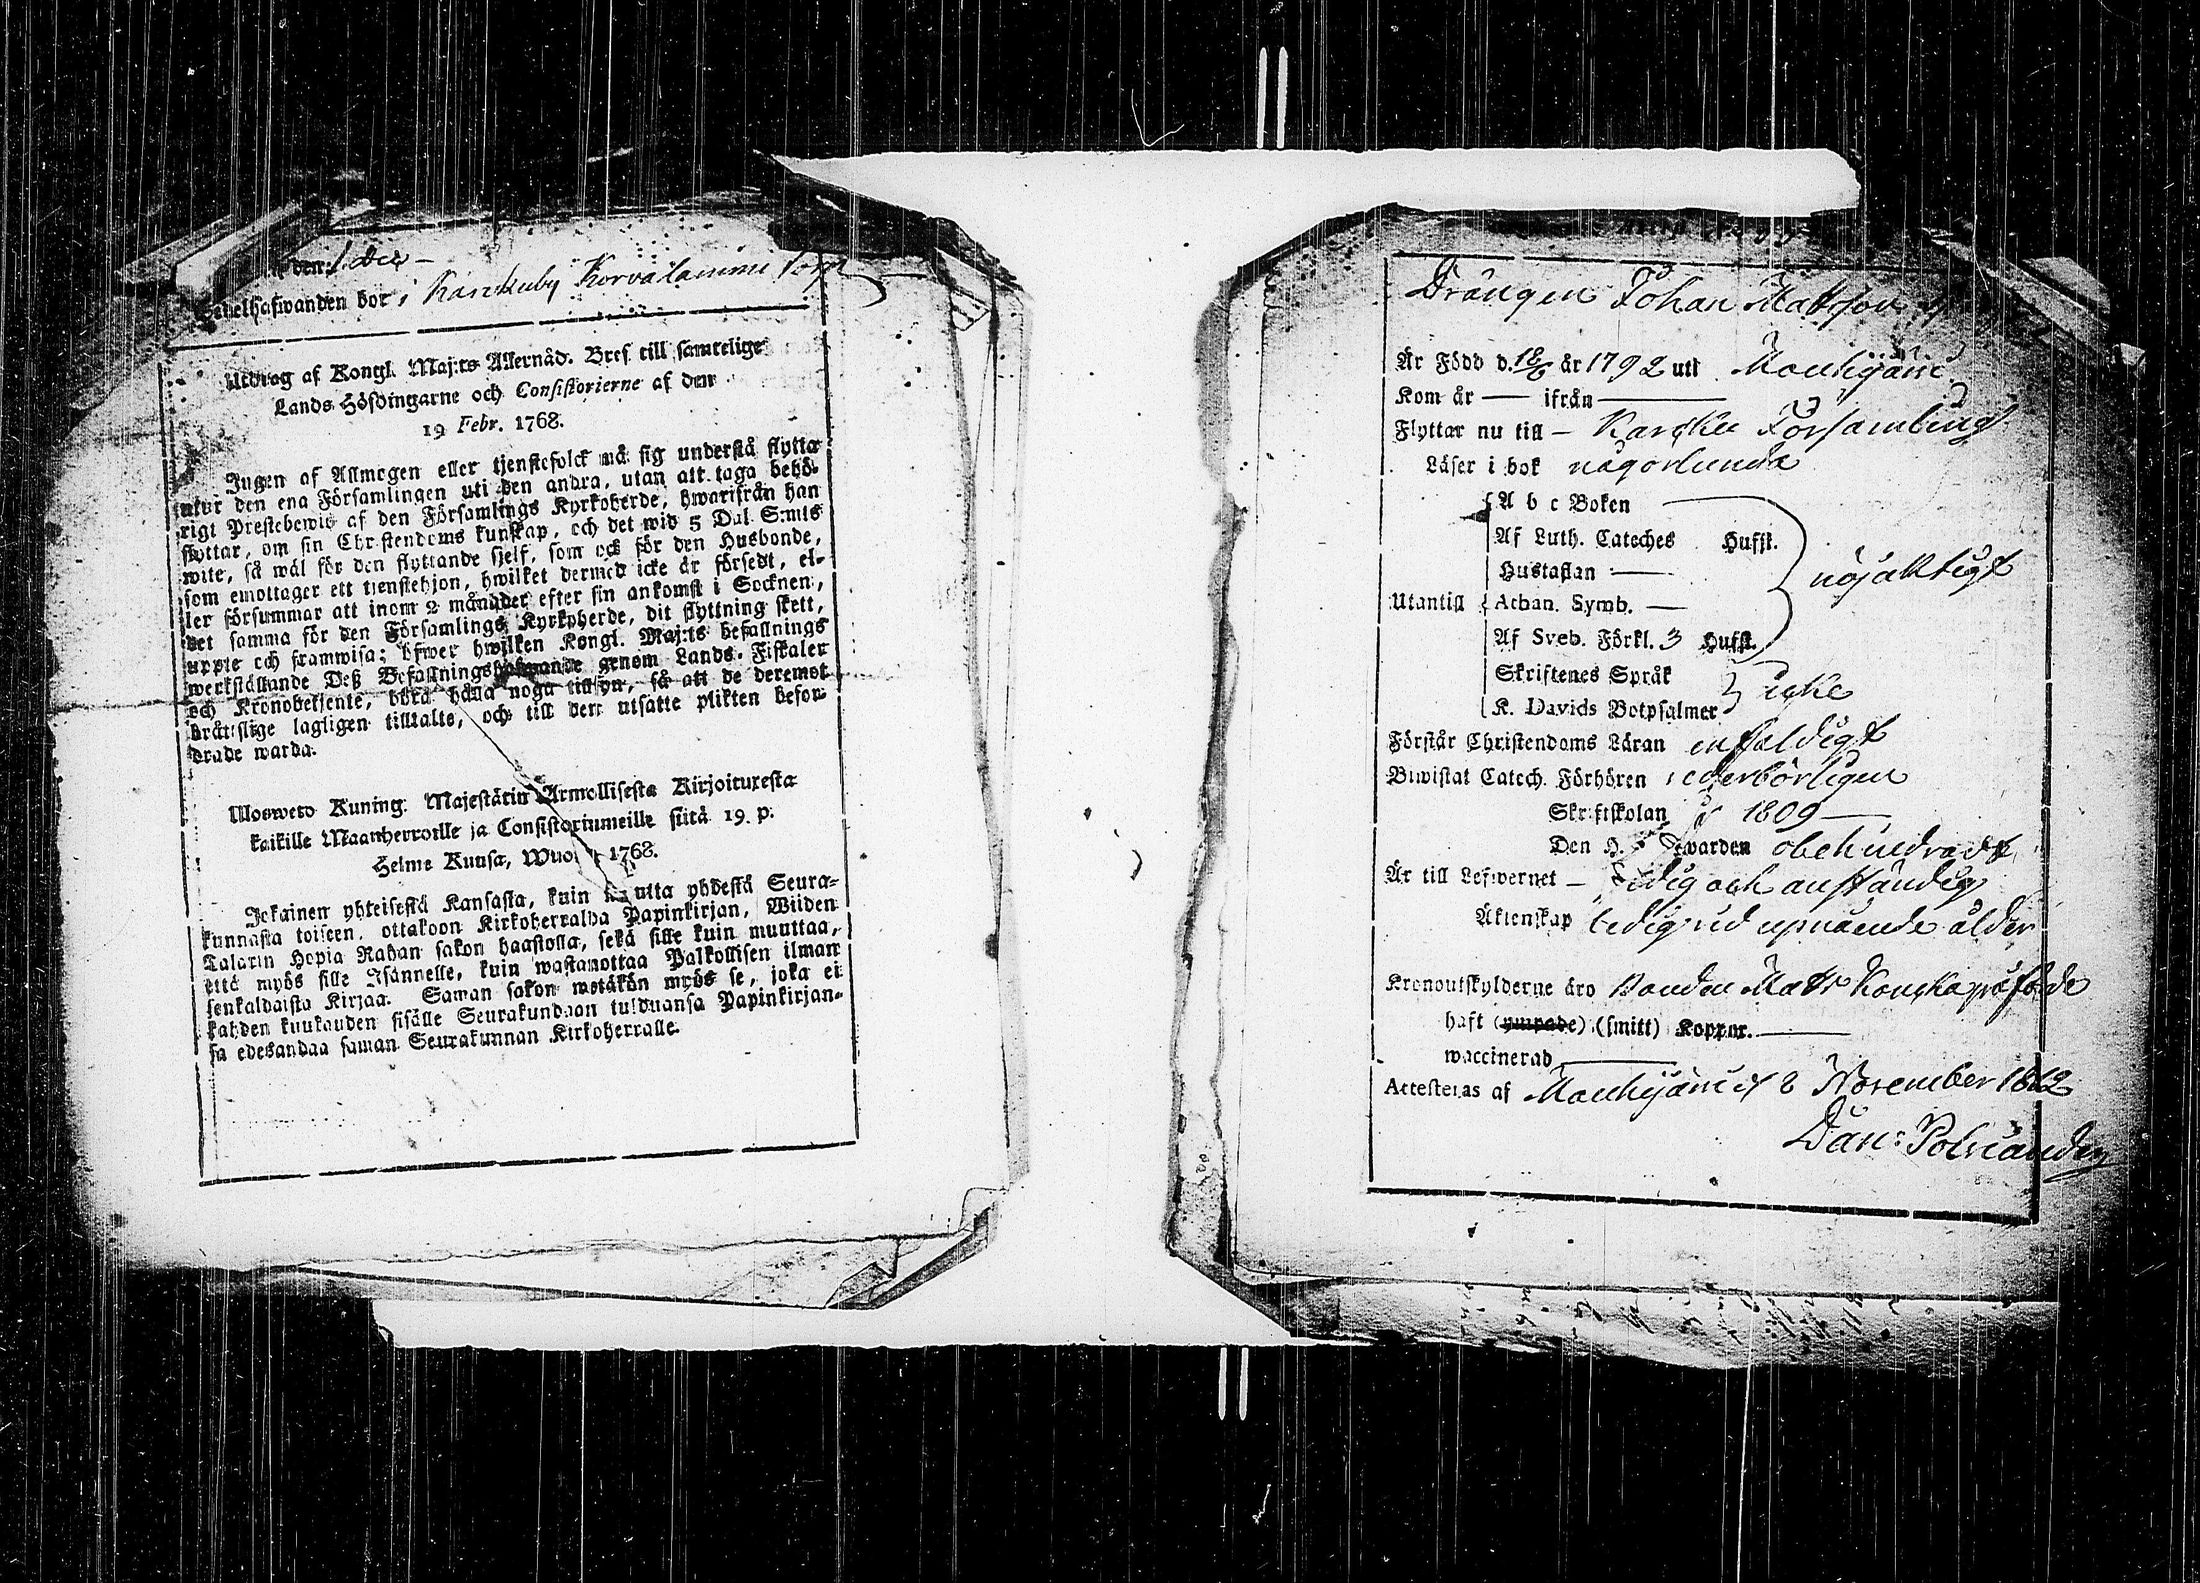 den 1 Dec –
bor i Karskuby Korvalammi Torp
Utdrag af Kongl. Maj:ts Allernåd. Bref till samtelige
Lands Höfdingarne och Consistorierne af den
19 Febr. 1768.
Ingen af Allmogen eller tjenstefolck må sig understå flytta
utur den ena Församlingen uti den andra, utan att taga behö-
rigt Prestebewis af den Församlings Kyrkoherde, hwarifrån han
flyttar, om sin Christendoms kunskap, och det wid 5 Dal. S:mts
wite, så wäl för den flyttande sjelf, som ock för den Husbonde,
som emottager ett tjenstehjon, hwilket dermed icke är försedt, el-
ler försummar att inom 2 månader efter sin ankomst i Socknen,
det samma för den Församlings Kyrkoherde, dit flyttning skett,
uppte och framwisa; öfwer hwilken Kongl. Maj:ts befallnings
werkställande Deß Befallningshafwande genom Lands-Fiskaler
och Kronobetjente, böra hålla noga tillsyn, så att de deremot
bråttslige lagligen tilltalte, och till den utsatte plikten befor-
drade warda.
Ulosweto Kuning. Majestätin Armollisesta Kirjoituxesta
kaikille Maanherroille ja Consistoriumeille siitä 19. p.
Helme Kuusa, Wuo 1768.
Jokainen yhteisestä Kansasta, kuin utta yhdestä Seura-
kunnasta toiseen, ottakoon Kirkoherralda Papinkirjan, Wiiden
Talarin Hopia Rahan sakon haastolla, sekä sille kuin muuttaa,
että myös sille Isännelle, kuin wastanottaa Palkollisen ilman
senkaldaista Kirjaa. Saman sakon wetäkön myös se, joka ei
kahden kuukauden sisälle Seurakundaan tulduansa Papinkirjan-
sa edesandaa saman Seurakunnan Kirkoherralle.
Drängen Johan Mattsson
Är Född d. 18/6 år 1792 uti Mouhijärvi
Kom år — ifrån —
Flyttar nu till – Karsku Församling
Läser i bok någorlunda
A b c Boken
Af Luth. Cateches Hufst.
Hustaflan —
nöjaktigt
Utantill Athan. Symb. —
Af Sveb. Förkl. 3 Hufst.
Skriftenes Språk
icke
K. Davids Botpsalmer
Förstår Christendoms Läran enfaldigt
Biwistat Catech. Förhören ederbörligen
Skriftskolan 1809 —
Den H. warden obehindradt
Är till Lefwernet – ledig och anständig
Äktenskap ledig vid upnående ålder
Kronoutskylderne äro Bonden Matts
haft (ympade) (smitt) Koppor. —
waccinerad —
Attesteras af Mouhijärvi d 8 November 1812
Dan: Polviander